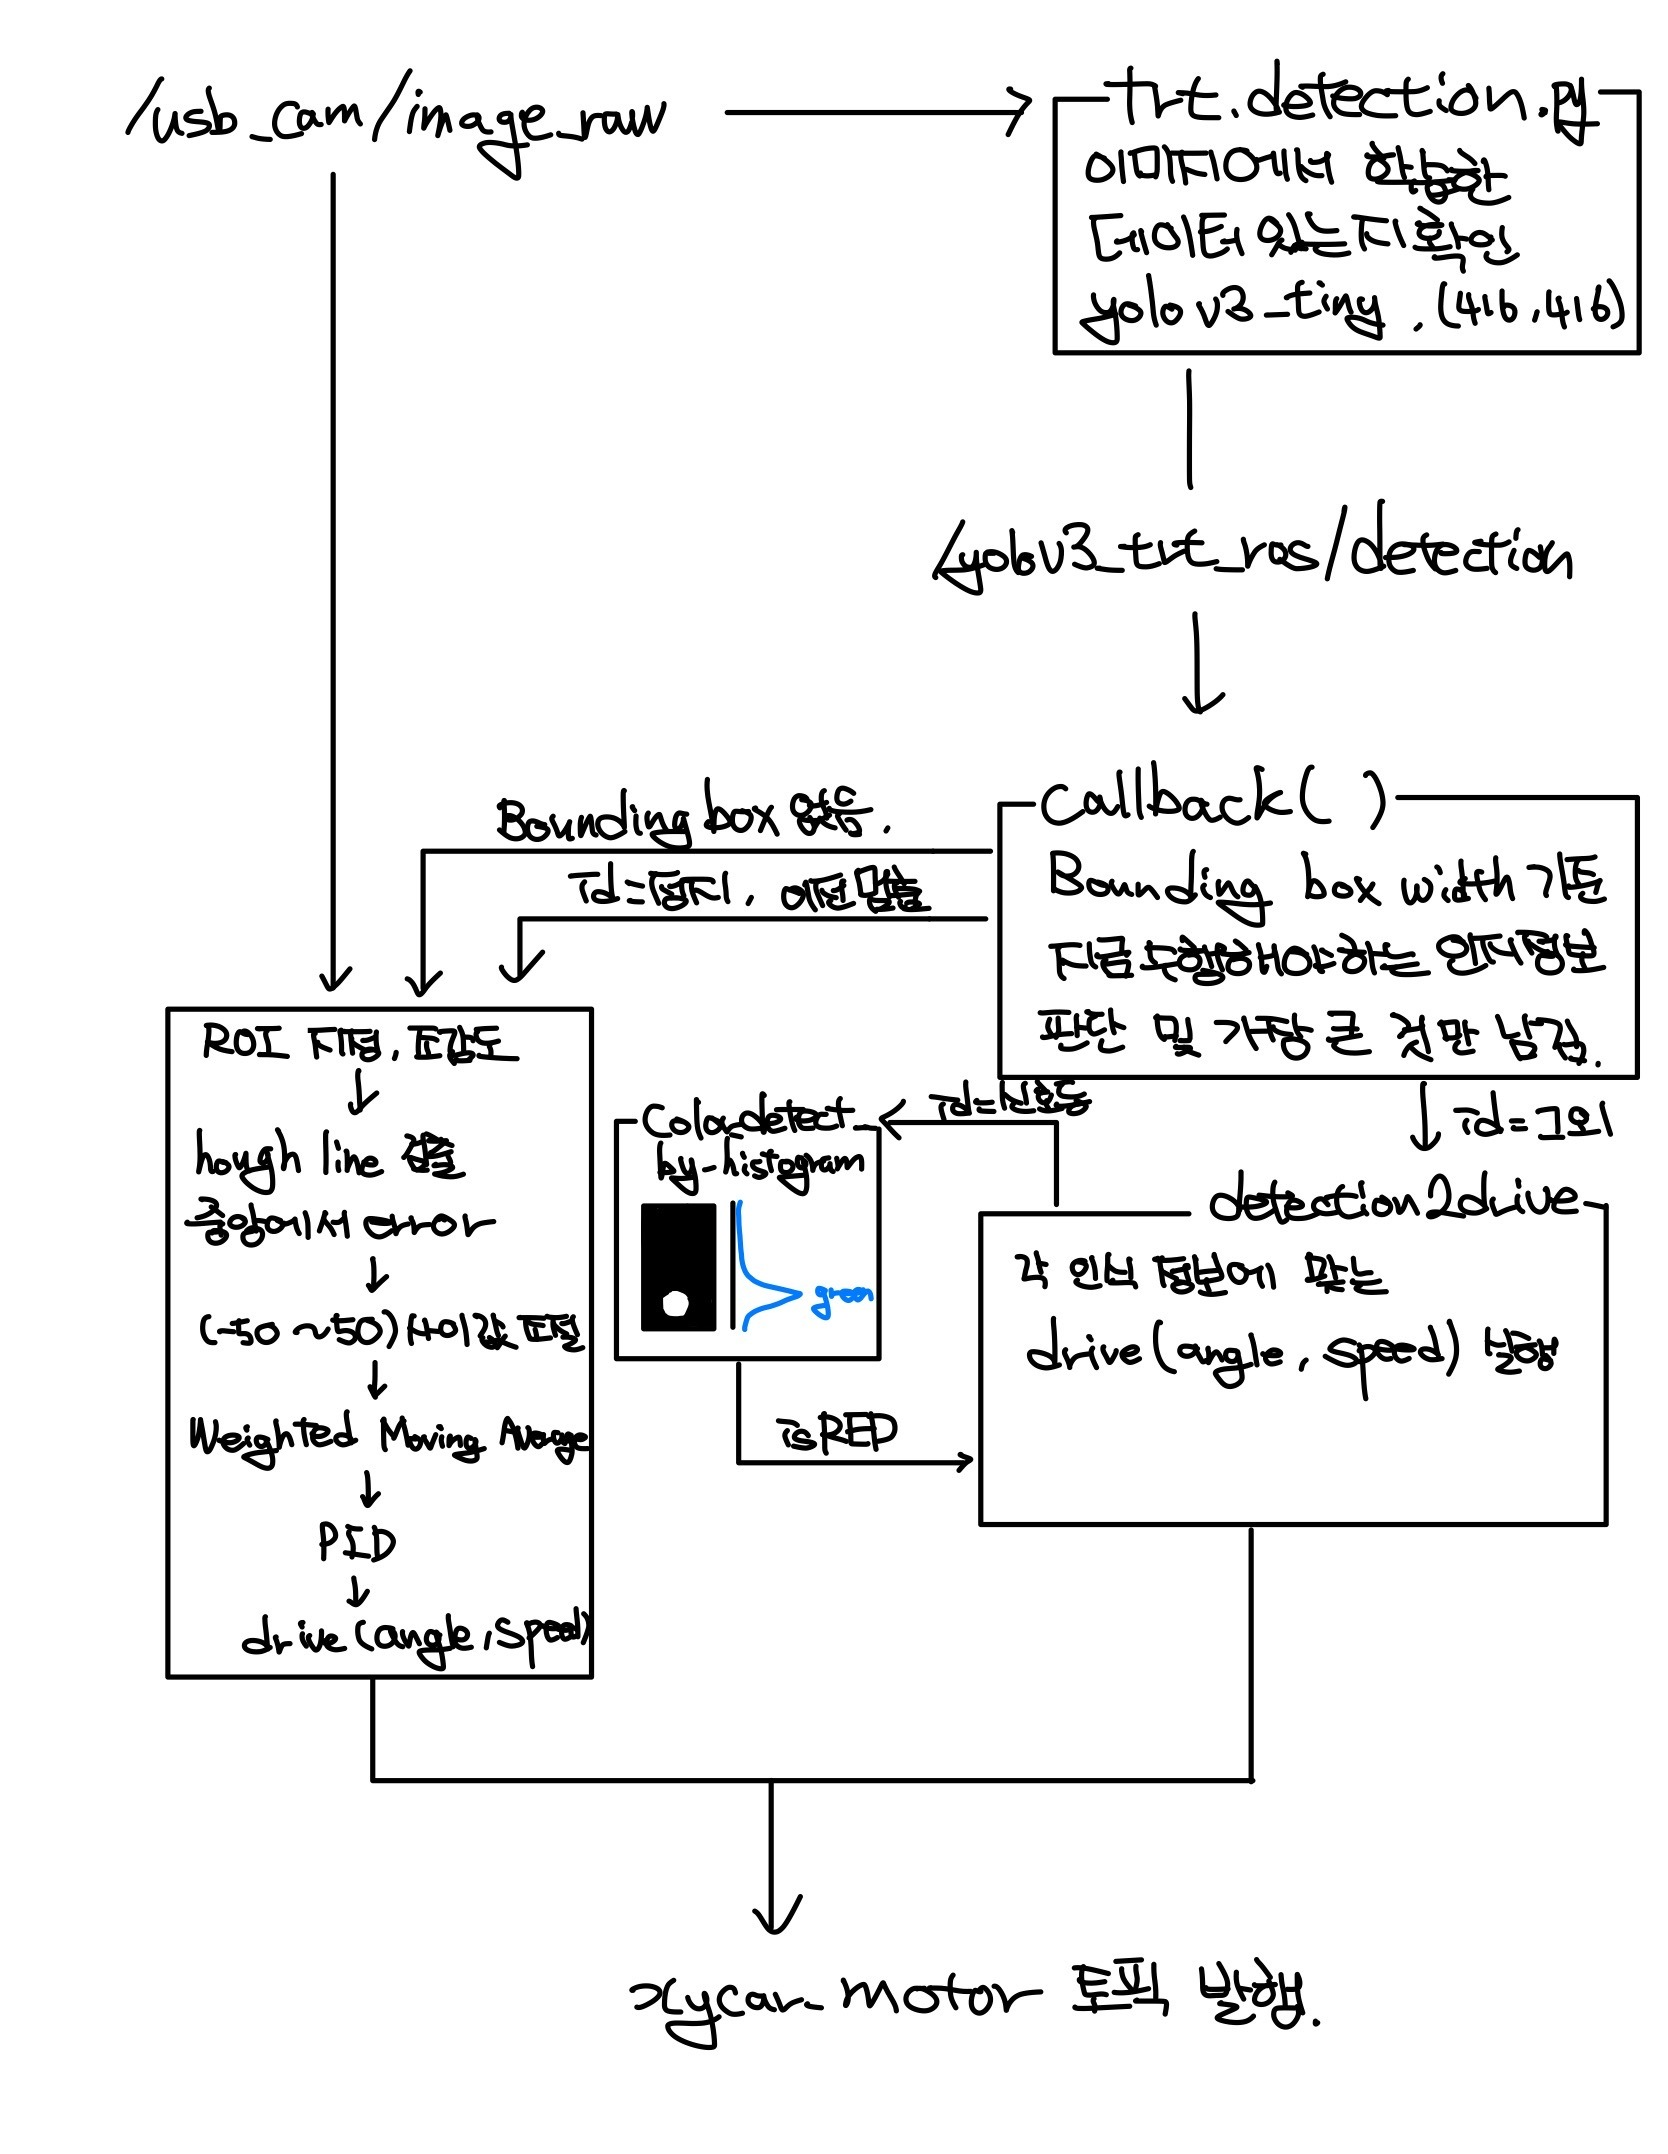 /usb_cam/image_raw
trt.detection.py
이미지에서 학습한
데이터 있는지 확인
yolov3_tiny . (416,416)
/yolov3_trt_ros/detection
Callback( )
Bounding box width 기준
지금 수행해야하는 인지정보
판단 및 가장 큰 것만 남김.
Bounding box 없음.
id=정지, 이전 맞춤
id=신호등
id=그외
ROI 지정, 표감도
hough line 검출
중앙에서 error
(-50 ~50) 사이값 조절
Weighted Moving Average
PID
drive (angle, speed)
Color_detect_
by-histogram
green
isRED
detection2drive
각 인식 정보에 맞는
drive(angle, speed) 실행
xycar_motor 토픽 발행.